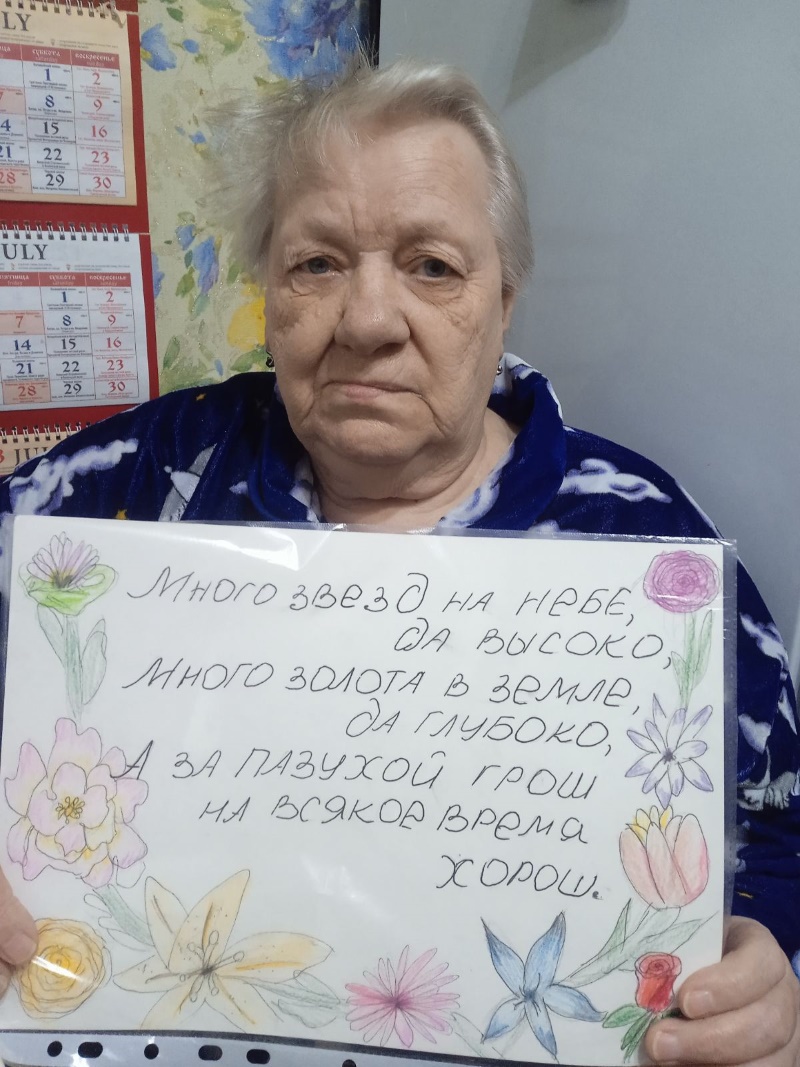 ULY
СУББОТА
ВОСКРЕСЕНЬЕ
1 2
7 8 9
4 15 16
21 22 23
28 29 30
JULY
ПЯТНИЦА СУББОТА ВОСКРЕСЕНЬЕ
1 2
7 8 9
14 15 16
21 22 23
28 29 30
3 JUL
Много звезд на небе,
да высоко,
Много золота в земле,
да глубоко,
А за пазухой грош
на всякое время
хорош.